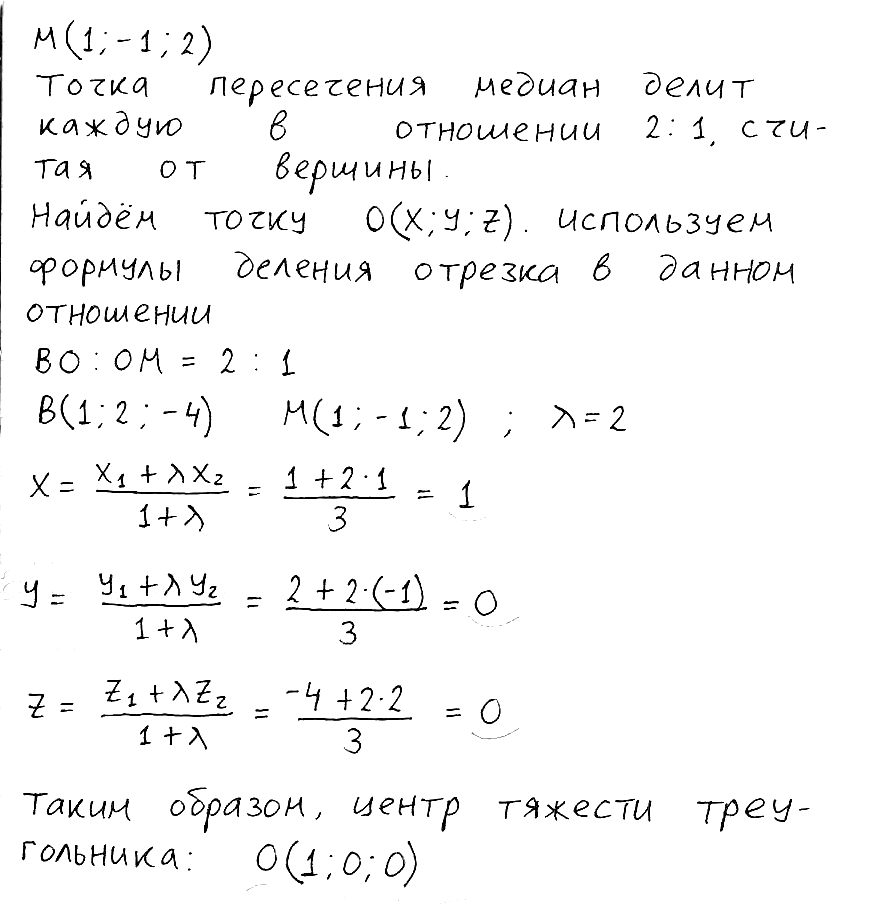 М(1; -1; 2)
Точка пересечения медиан делит
каждую в отношении 2:1, счи-
тая от вершины.
Найдём точку О(X; Y; Z). Используем
формулы деления отрезка в данном
отношении
ВО : ОМ = 2 : 1
В(1; 2; -4) М(1; -1; 2) ; λ = 2
X = (X₁ + λX₂)/(1 + λ) = (1 + 2·1)/3 = 1
Y = (Y₁ + λY₂)/(1 + λ) = (2 + 2·(-1))/3 = 0
Z = (Z₁ + λZ₂)/(1 + λ) = (-4 + 2·2)/3 = 0
Таким образом, центр тяжести треу-
гольника: О(1; 0; 0)